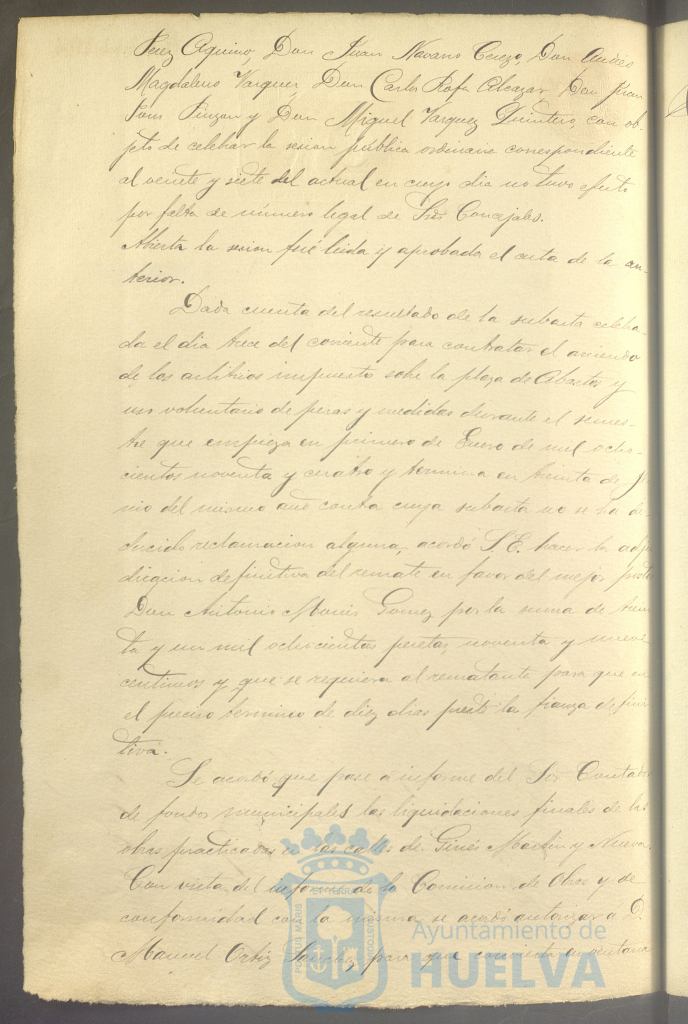 Perez Aquino, Don Juan Navarro Cerezo, Don Andrés
Magdaleno Vazquez, Don Carlos Rofa Alcazar Don Juan
Pinzon y Don Miguel Vazquez Quintero, con ob-
jeto de celebrar la sesion publica ordinaria correspondiente
al veinte y siete del actual en cuyo dia no tuvo efecto
por falta de número legal de Sres Concejales.
Abierta la sesion fué leida y aprobada el acta de la an-
terior.
Dada cuenta del resultado de la subasta celebra-
da el dia trece del corriente para contratar el arriendo
de los arbitrios impuesto sobre la plaza de Abastos y
uso voluntario de pesas y medidas durante el semes-
tre que empieza en primero de Enero de mil ocho-
cientos noventa y cuatro y termina en treinta de Ju
nio del mismo año contra cuya subasta no se ha de
ducido reclamacion alguna, acordó S.E. hacer la adju
dicacion definitiva del remate en favor del mejor postor
Don Antonio Gomez por la suma de trein
ta y un mil ochocientas pesetas, noventa y nueve
centimos y que se requiera al rematante para que en
el preciso termino de diez dias preste la fianza defini
tiva.
Se acordó que pase á informe del Sor Contador
de fondos municipales las liquidaciones finales de las
obras practicadas en las calles de Ginés Martin y Nueva.
Con vista del informe de la Comision de Obras y de
conformidad con la misma se acordó autorizar á D.
Manuel Ortiz Sanchez para que convierta en ventana
PORTUS MARIS
ET TERRAE
CUSTODIA
Ayuntamiento de
HUELVA